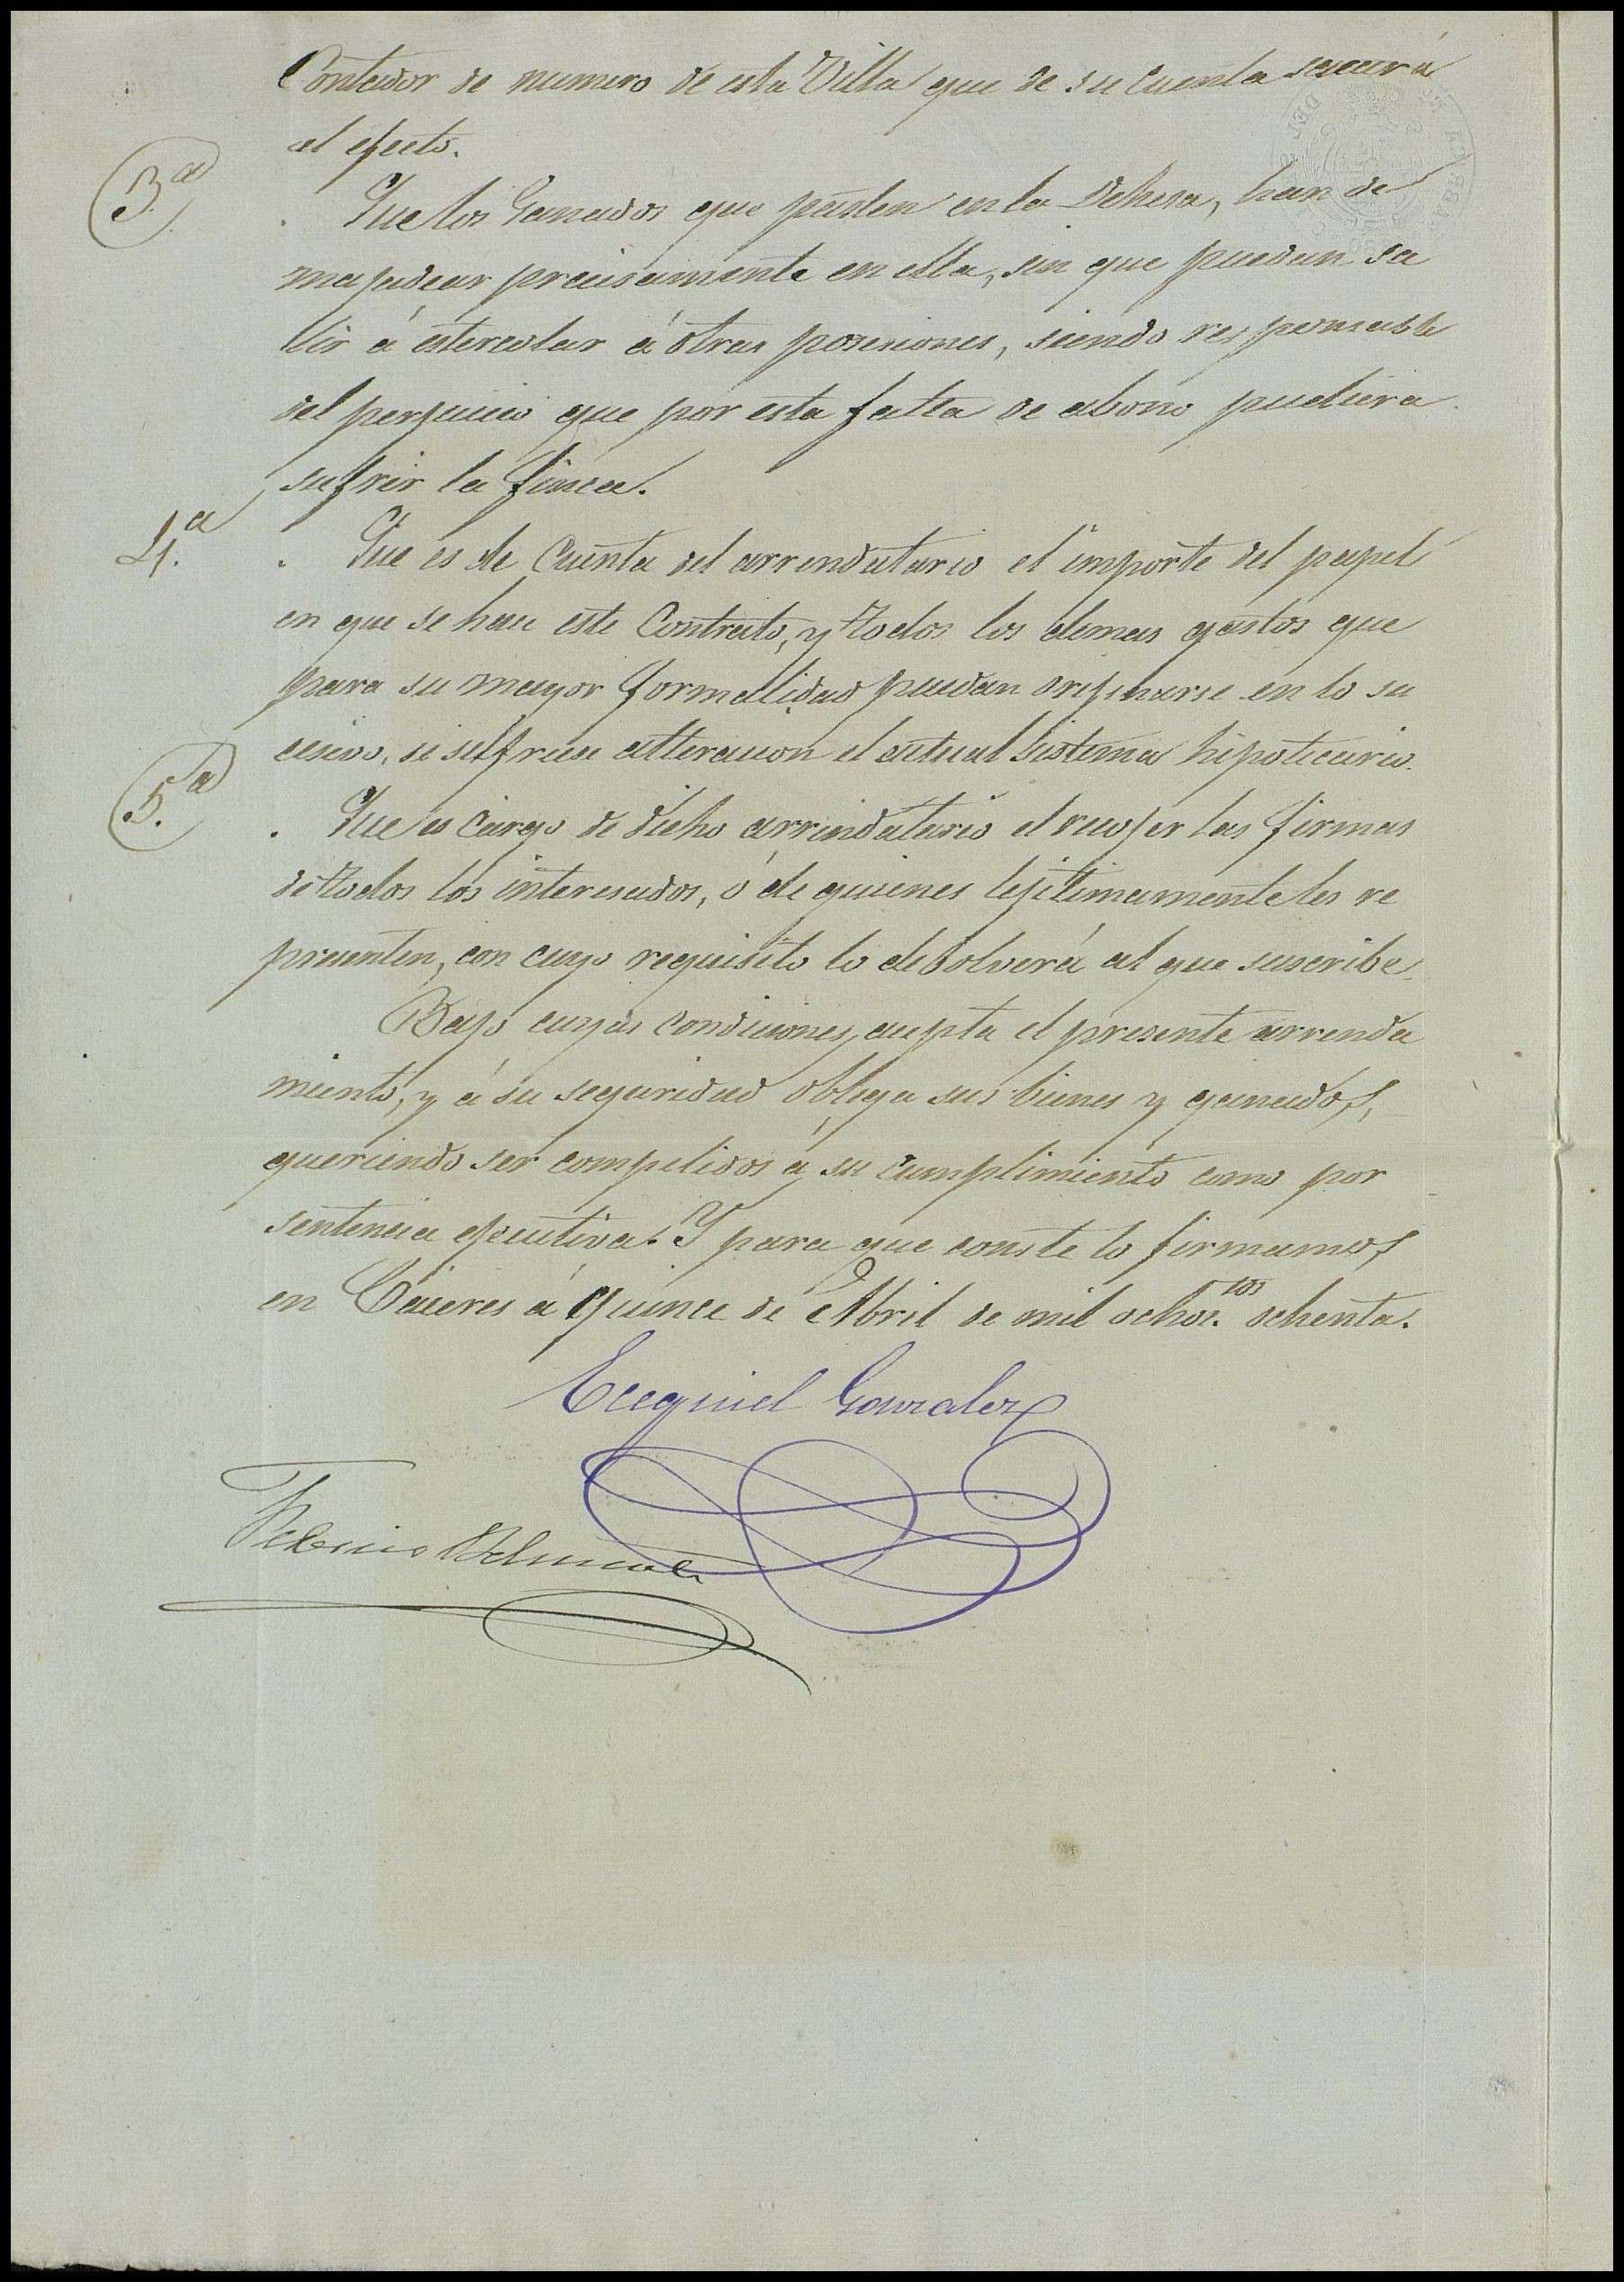 Contador de numero de esta Villa que de su cuenta sacará
al efecto.
3.ª
Que los Ganados que pasten en la Dehesa, han de
majadear precisamente en ella, sin que puedan sa
lir á estercolar á otras posesiones, siendo responsable
del perjuicio que por esta falta de abono pudiera
sufrir la finca.
4.ª
Que es de Cuenta del arrendatario el importe del papel
en que se hace este Contrato, y todos los demas gastos que
para su mayor formalidad puedan orijinarse en lo su
cesivo, si sufriese alteracion el actual Sistema hipotecario.
5.ª
Que es cargo de dicho arrendatario el recojer las firmas
de todos los interesados, ó de quienes lejitimamente les re
presenten, con cuyo requisito lo debolverá al que suscribe
Bajo cuyas condiciones, acepta el presente arrenda
miento, y á su seguridad obliga sus bienes y ganados,
queriendo ser compelidos á su cumplimiento como por
sentencia ejecutiva. Y para que conste lo firmamos
en Cáceres á Quince de Abril de mil ochoz.tos ochenta.
Ecequiel Gonzalez
Federico